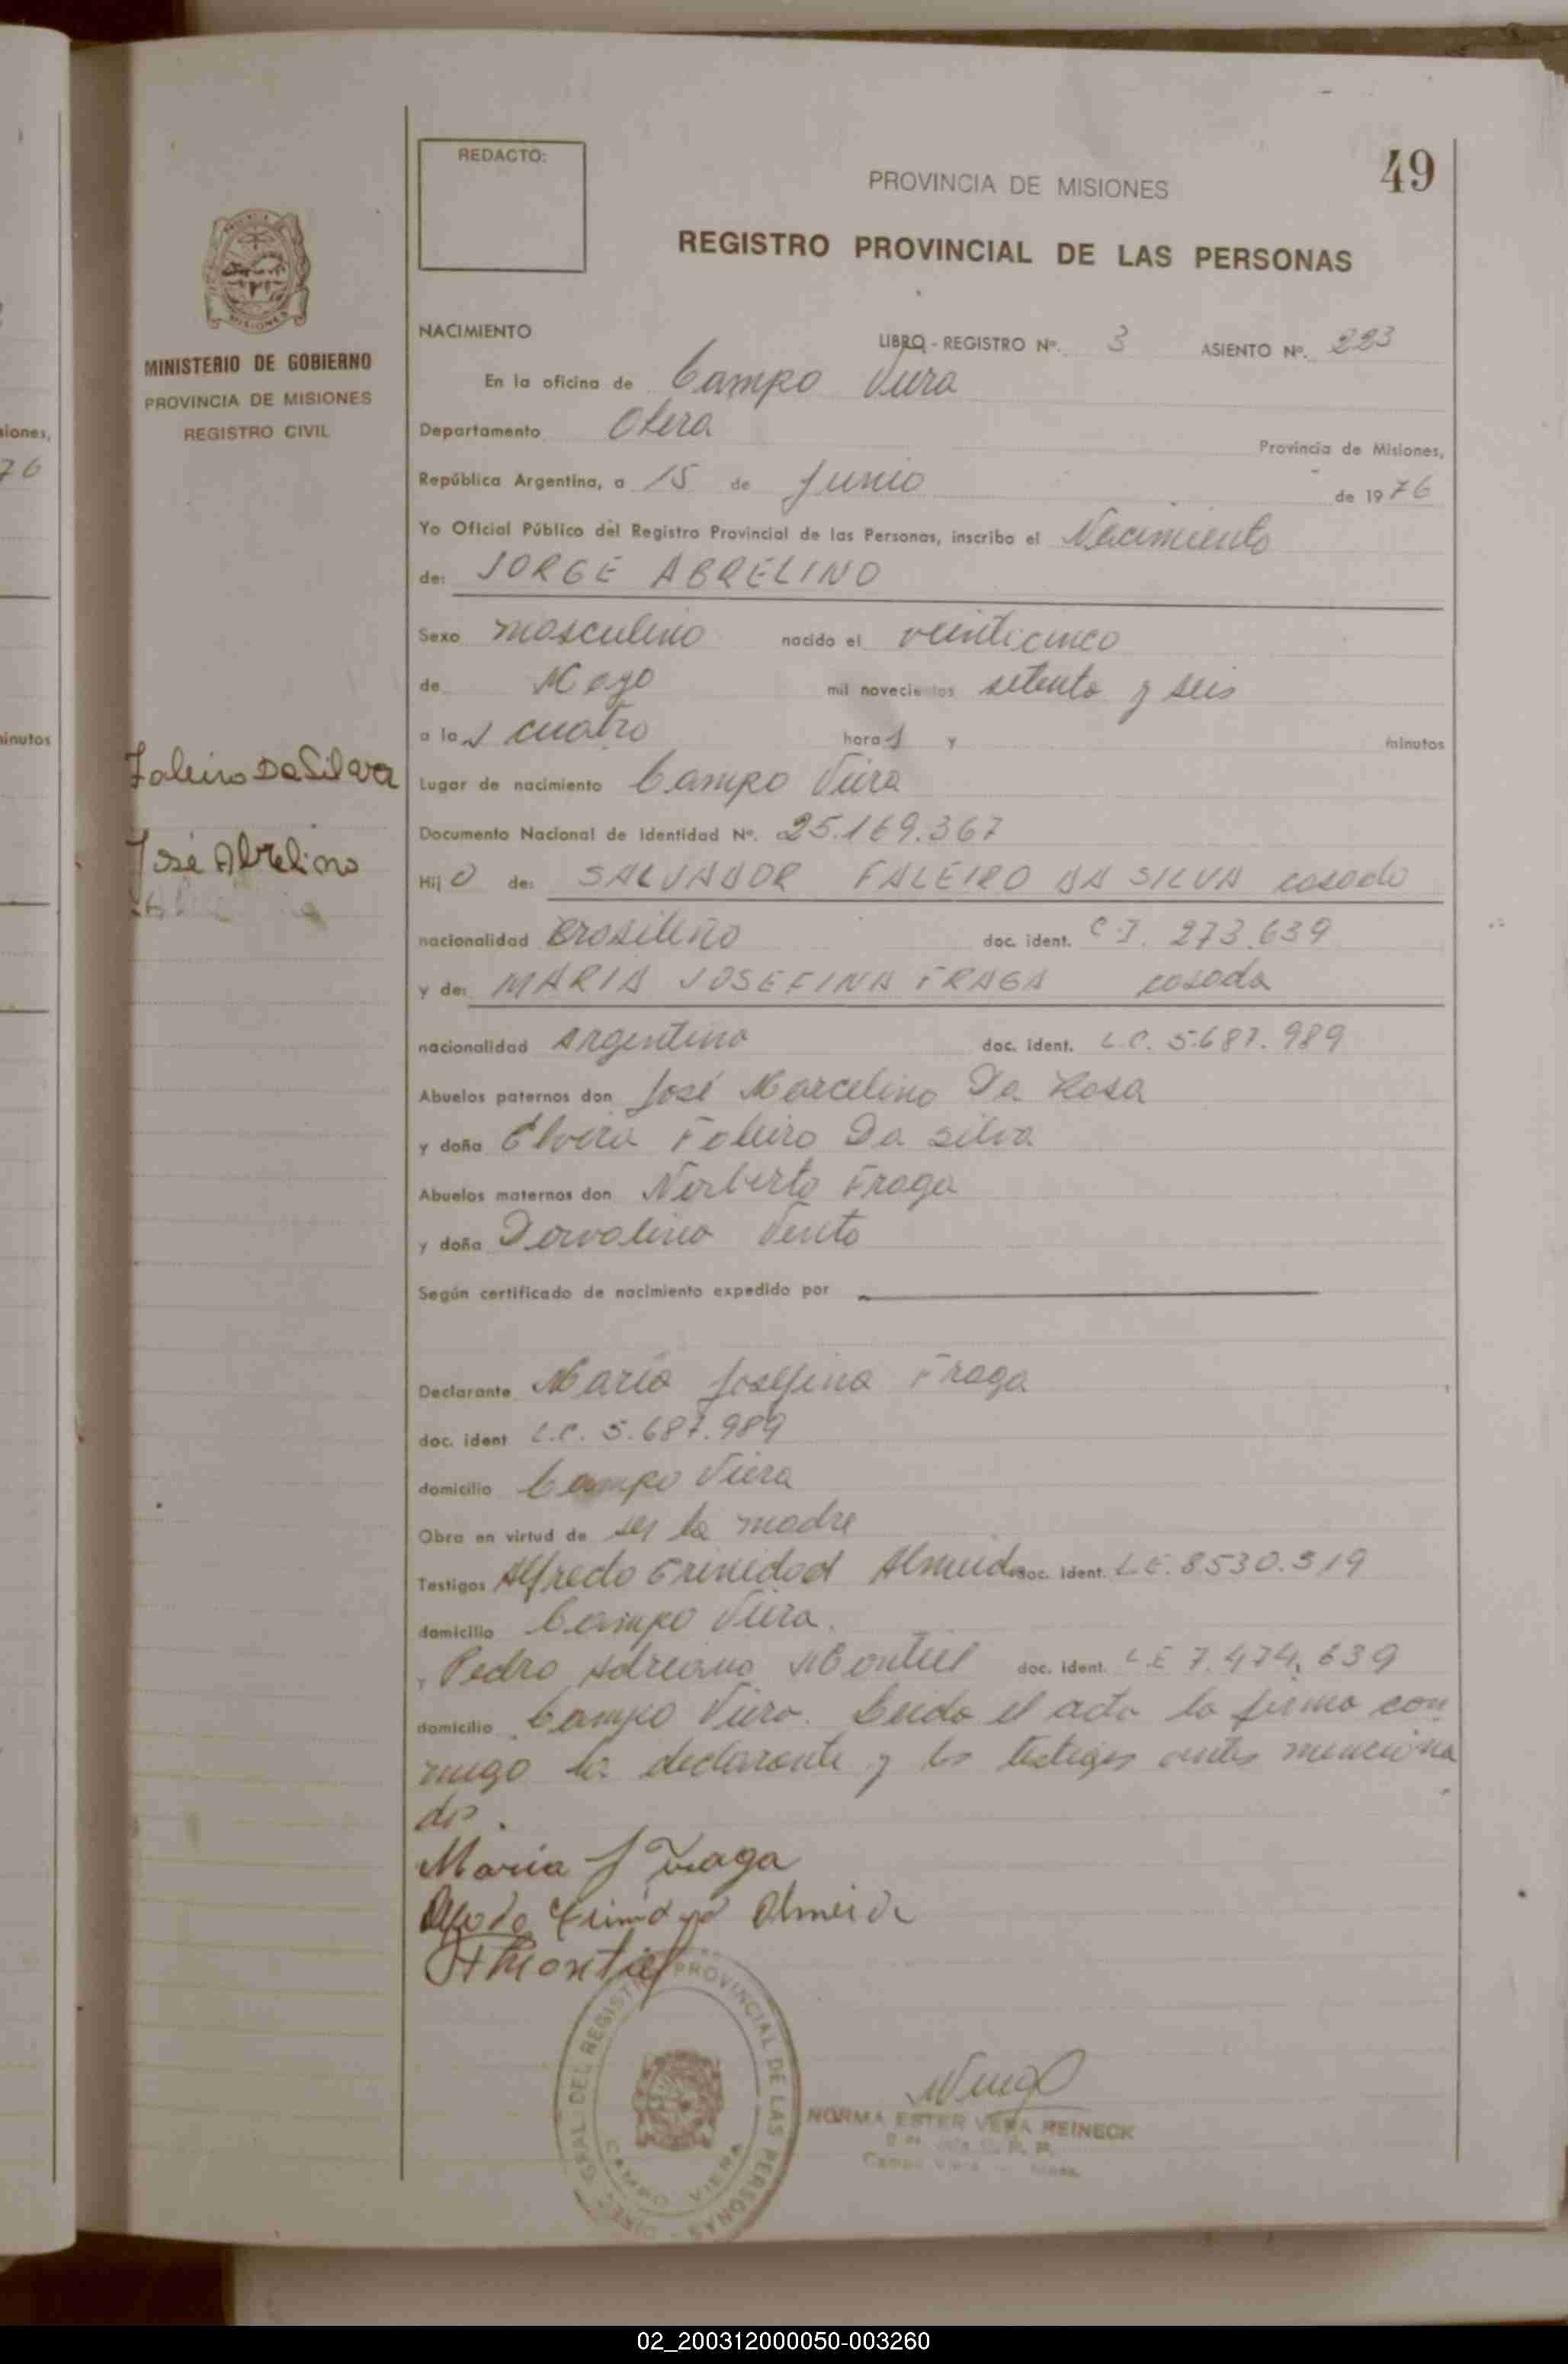 REDACTO:
PROVINCIA DE MISIONES
49
REGISTRO PROVINCIAL DE LAS PERSONAS
MINISTERIO DE GOBIERNO
PROVINCIA DE MISIONES
REGISTRO CIVIL
iones,
76
minutos
NACIMIENTO
LIBRO - REGISTRO Nº. 3 ASIENTO Nº. 223
En la oficina de Campo Viera
Departamento Obera
Provincia de Misiones,
República Argentina, a 15 de Junio de 1976
Yo Oficial Público del Registro Provincial de las Personas, inscribo el Nacimiento
de: JORGE ABRELINO
Sexo masculino nacido el veinticinco
de Mayo mil novecientos setenta y seis
a las cuatro horas y minutos
Faleiro Da Silva
Lugar de nacimiento Campo Viera
Documento Nacional de Identidad Nº. 25.169.367
José Abrelino
Hijo de: SALVADOR FALEIRO DA SILVA casado
nacionalidad Brasileño doc. ident. C.I. 273.639
y de: MARIA JOSEFINA FRAGA casada
nacionalidad Argentina doc. ident. L.C. 5.687.989
Abuelos paternos don José Marcelino Da Rosa
y doña Elvira Faleiro Da Silva
Abuelos maternos don Norberto Fraga
y doña Dorvalina
Según certificado de nacimiento expedido por
Declarante María Josefina Fraga
doc. ident L.C. 5.687.989
domicilio Campo Viera
Obra en virtud de ser la madre
Testigos Alfredo Trinidad Almeida doc. ident. L.E. 8530.319
domicilio Campo Viera.
y Pedro Adriano Montiel doc. ident. L.E 7.474.639
domicilio Campo Viera. Leida el acta la firma con
migo la declarante y los testigos antes menciona
dos.
Maria J Fraga
Alfredo Trinidad Almeida
Montiel
DIREC. GRAL. DEL REGISTRO PROVINCIAL DE LAS PERSONAS
CAMPO VIERA
NORMA ESTER VERA REINECK
Campo Viera
02_200312000050-003260